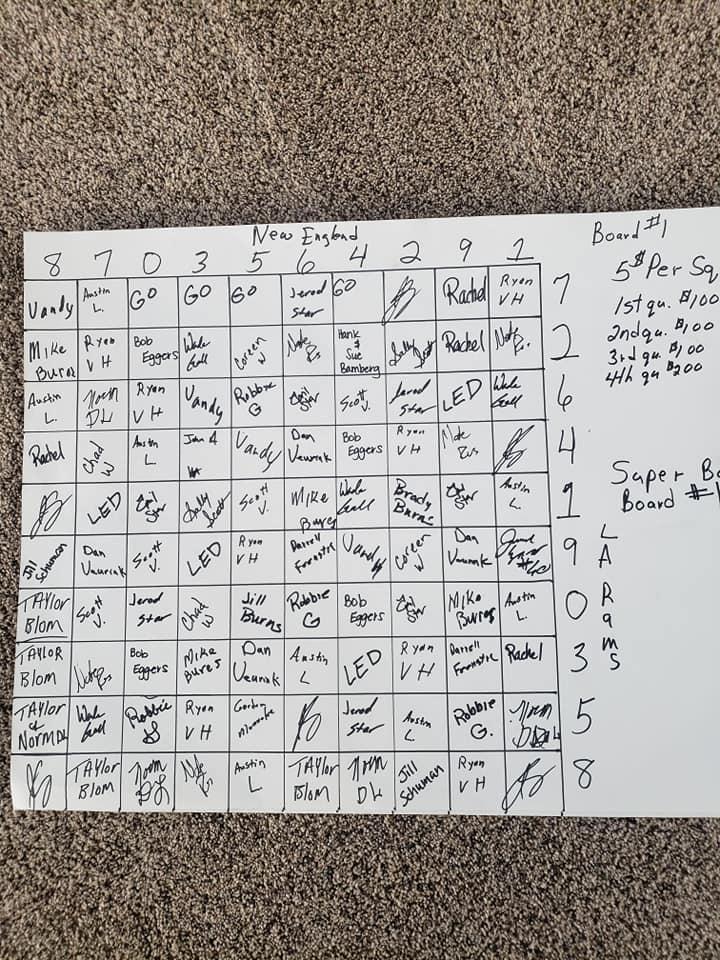 New England
Board #1
8 7 0 3 5 6 4 2 9 1
5$ Per Sq
1st qu. $100
2nd qu. $100
3rd qu $100
4th qu $200
Super Bo
Board #1
LA Rams
Vandy Austin L. GO GO GO Jerod Star GO Rachel Ryan VH 7
Mike Bures Ryan VH Bob Eggers Wade Gall Coreen W Nate Es Hank & Sue Bamberg Sally Scott Rachel Nate Es. 2
Austin L. Norm DL Ryan VH Vandy Robbie G Emil Star Scott V. Jerod Star LED Wade Gall 6
Rachel Chad W Austin L Vandy Dan Veurink Bob Eggers Ryan VH Nate Es 4
LED Emil Star Sally Scott Scott V. Mike Bures Wade Gall Brady Burns Emil Star Austin L. 1
Jill Schuman Dan Veurink Scott V. LED Ryan VH Darrell Vandy Coreen W Dan Veurink 9
TAYlor Blom Scott V. Jerod Star Chad W Jill Burns Robbie G Bob Eggers Emil Star Mike Bures Austin L. 0
TAYLOR Blom Nate Es Bob Eggers Mike Bures Dan Veurink Austin L LED Ryan VH Darrell Rachel 3
TAYlor & Norm DL Wade Gall Robbie G Ryan VH Gordon Jerod Star Austin L Robbie G. Norm DL 5
TAYlor Blom Norm DL Nate Es Austin L TAYlor Blom Norm DL Jill Schuman Ryan VH 8